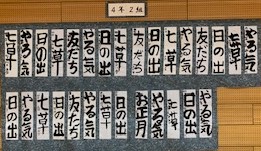 4年2組
やる気
七草
日の出
友だち
やる気
日の出
七草
友だち
日の出
七草
やる気
友だち
七草
日の出
やる気
七草
やる気
日の出
七草
お正月
やる気
友だち
日の出
七草
やる気
友だち
日の出
七草
やる気
日の出